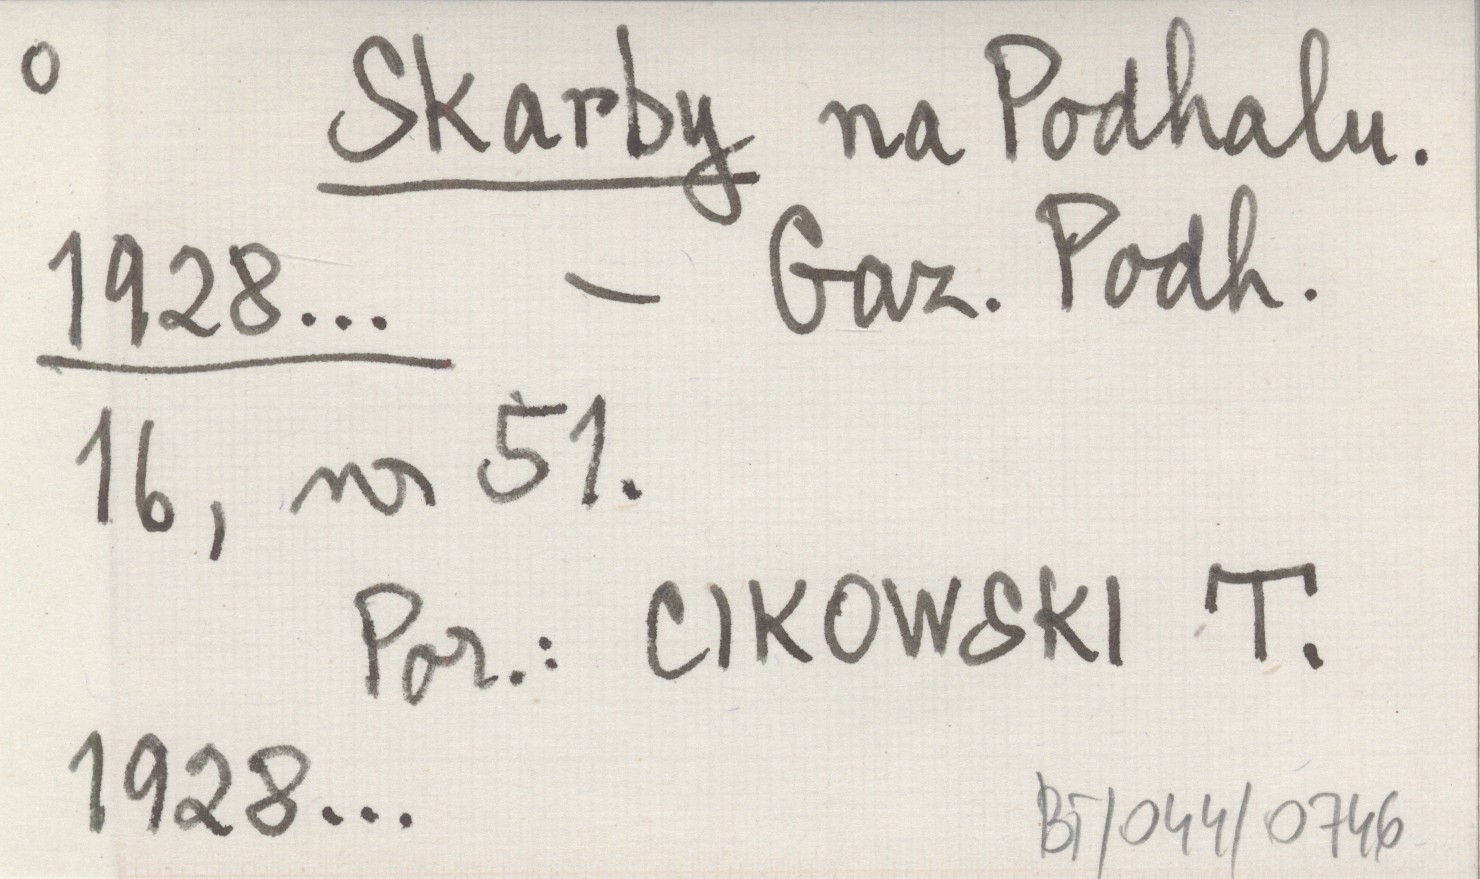 o Skarby na Podhalu.
1928... – Gaz. Podh.
16, nr 51.
Por.: CIKOWSKI T.
1928...
BT/044/0746